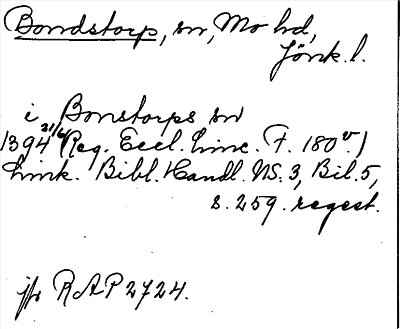 Bondstorp, sn, Mo hd,
Jönk. l.
i Bonstorps sn
1394 21/6 (Reg. Eccl. Linc. F. 180v.)
Link. Bibl. Handl. NS. 3, Bil. 5,
s. 259. regest.
jfr RAP 2724.